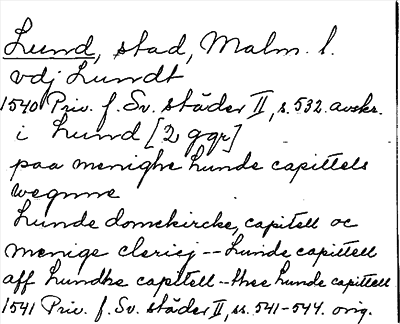 Lund, stad, Malm. l.
vdj Lundt
1540 Priv. f. Sv. städer II, s. 532. avskr.
i Lund [2 ggr]
paa menighe Lunde capittels
wegnne
Lunde domekircke, capitell oc
menige clericj -- Lunde capittell
aff Lundhe capitell -- thee Lunde capittell
1541 Priv. f. Sv. städer II, ss. 541-544. orig.